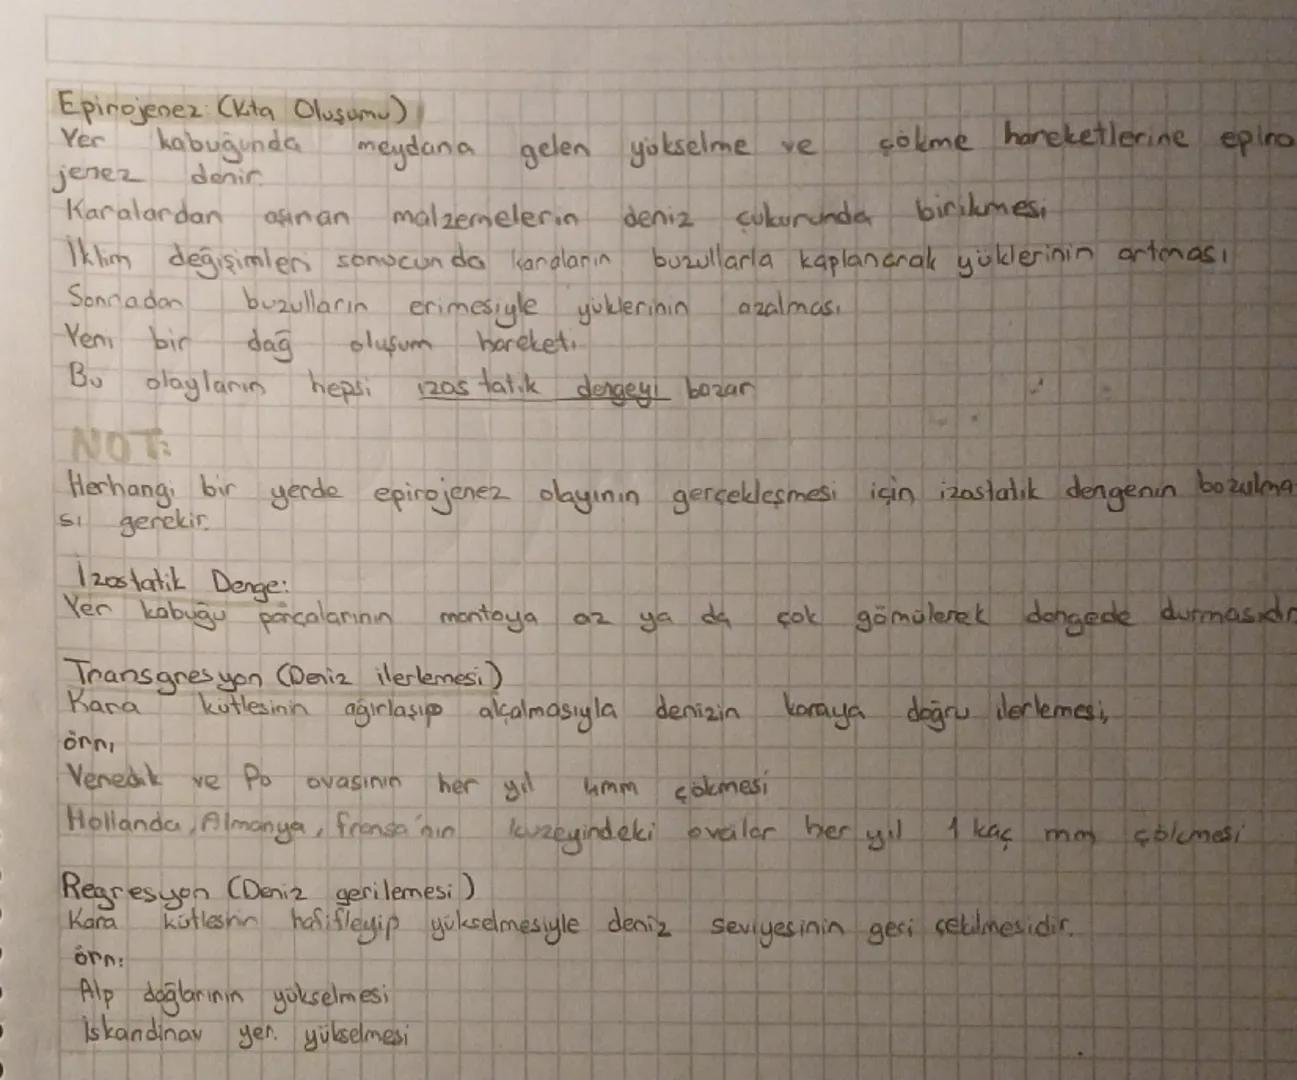 Epirojenez: (Kıta Oluşumu)
Yer kabuğunda meydana gelen yükselme ve çökme hareketlerine epiro
jenez denir.
Karalardan aşınan malzemelerin deniz çukurunda birikmesi
İklim değişimleri sonucunda karaların buzullarla kaplanarak yüklerinin artması
Sonradan buzulların erimesiyle yüklerinin azalması
Yeni bir dağ oluşum hareketi
Bu olayların hepsi izostatik dengeyi bozar
NOT:
Herhangi bir yerde epirojenez olayının gerçekleşmesi için izostatik dengenin bozulma
sı gerekir.
İzostatik Denge:
Yer kabuğu parçalarının mantoya az ya da çok gömülerek dengede durmasıdır
Transgresyon (Deniz ilerlemesi)
Kara kütlesinin ağırlaşıp alçalmasıyla denizin karaya doğru ilerlemesi,
örn,
Venedik ve Po ovasının her yıl 4mm çökmesi
Hollanda, Almanya, fransa'nın kuzeyindeki ovalar her yıl 1 kaç mm çökmesi
Regresyon (Deniz gerilemesi)
Kara kütlesnin hafifleyip yükselmesiyle deniz seviyesinin geri çekilmesidir.
örn:
Alp dağlarının yükselmesi
İskandinav yer. yükselmesi